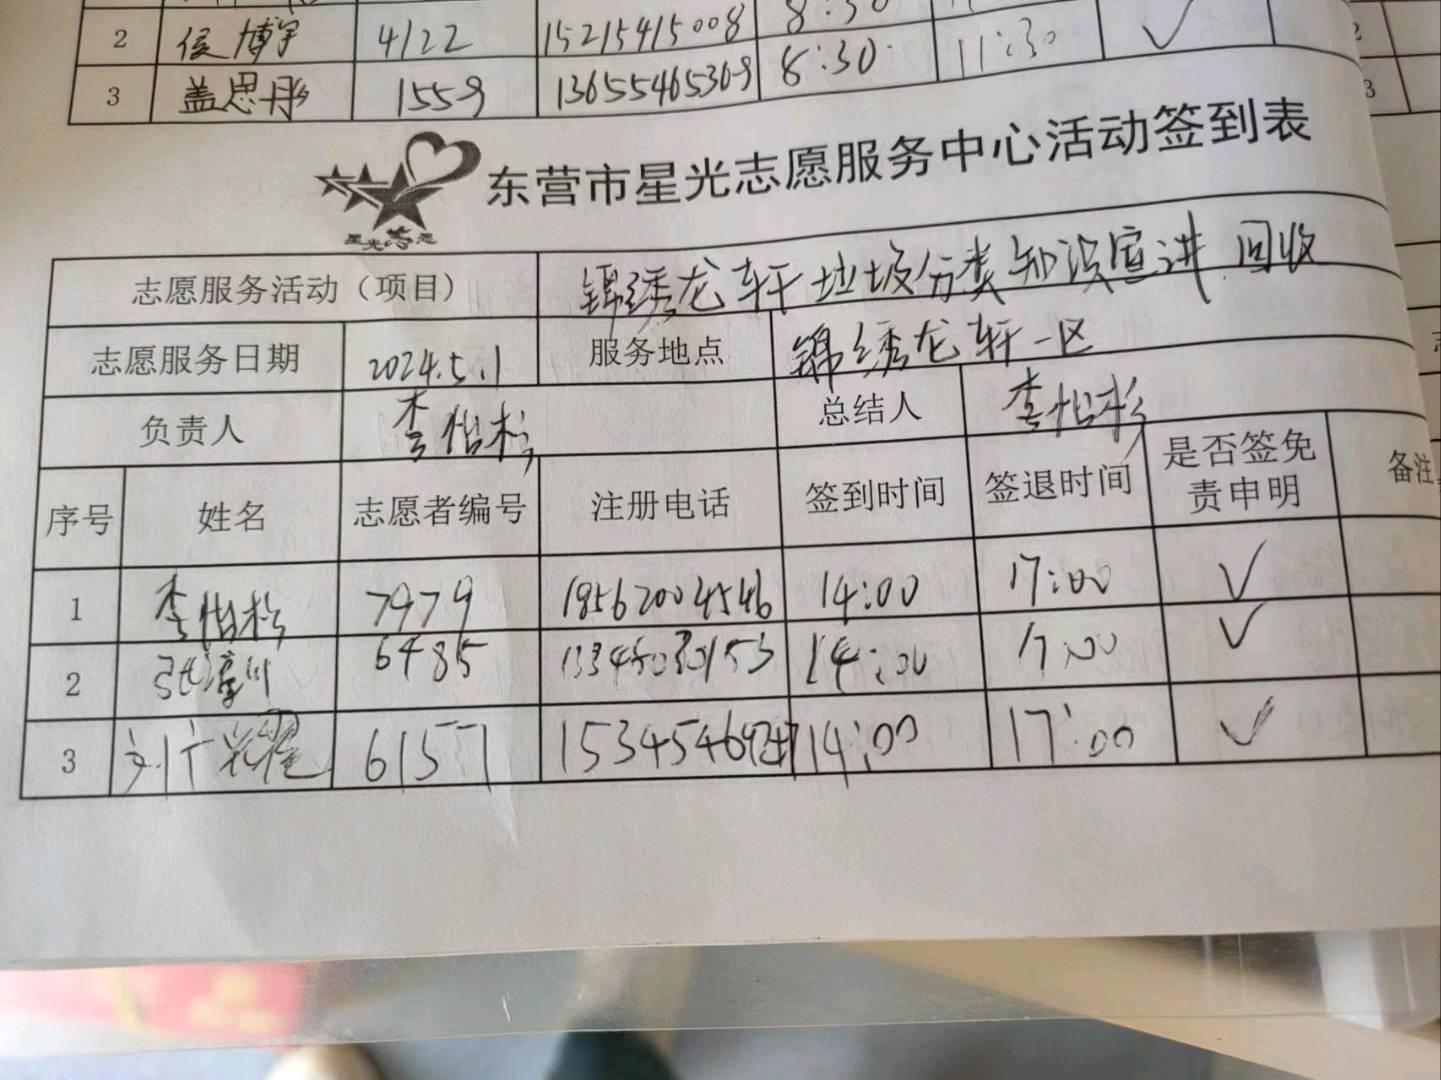 2 侯博宇 4122 15215415008 8:30
3 盖思彤 1559 13655465369 8:30 11:30
星光志愿
东营市星光志愿服务中心活动签到表
志愿服务活动（项目） 锦绣龙轩垃圾分类知识宣讲 回收
志愿服务日期 2024.5.1 服务地点 锦绣龙轩一区
负责人 李怡杉 总结人 李怡杉
序号 姓名 志愿者编号 注册电话 签到时间 签退时间 是否签免责申明 备注
1 李怡杉 7479 18562004546 14:00 17:00 ✓
2 6485 14:00 17:00 ✓
3 6157 14:00 17:00 ✓